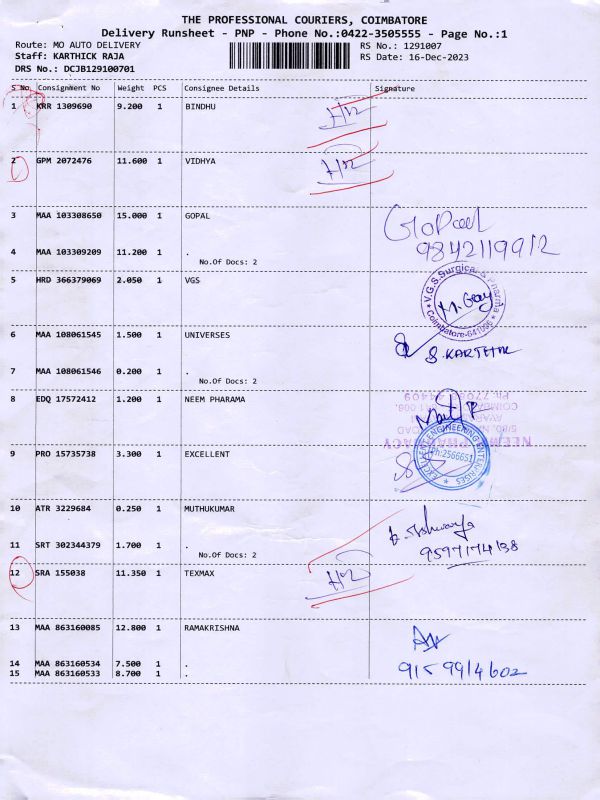 THE PROFESSIONAL COURIERS, COIMBATORE
Delivery Runsheet - PNP - Phone No.:0422-3505555 - Page No.:1
Route: MO AUTO DELIVERY RS No.: 1291007
Staff: KARTHICK RAJA RS Date: 16-Dec-2023
DRS No.: DCJB129100701
S No. Consignment No Weight PCS Consignee Details Signature
1 KRR 1309690 9.200 1 BINDHU
2 GPM 2072476 11.600 1 VIDHYA
3 MAA 103308650 15.000 1 GOPAL Gopal
9842119912
4 MAA 103309209 11.200 1 .
No.Of Docs: 2
5 HRD 366379069 2.050 1 VGS
V.G.S.Surgical & Pharma
Coimbatore-641006
6 MAA 108061545 1.500 1 UNIVERSES
S. KARTHIK
7 MAA 108061546 0.200 1 .
No.Of Docs: 2
8 EDQ 17572412 1.200 1 NEEM PHARAMA
NEEM PHARMACY
9 PRO 15735738 3.300 1 EXCELLENT
EXCELLENT ENGINEERING ENTERPRISES
Ph:2566651
10 ATR 3229684 0.250 1 MUTHUKUMAR
11 SRT 302344379 1.700 1 .
9597174138
No.Of Docs: 2
12 SRA 155038 11.350 1 TEXMAX
13 MAA 863160085 12.800 1 RAMAKRISHNA
14 MAA 863160534 7.500 1 .
9159914602
15 MAA 863160533 8.700 1 .